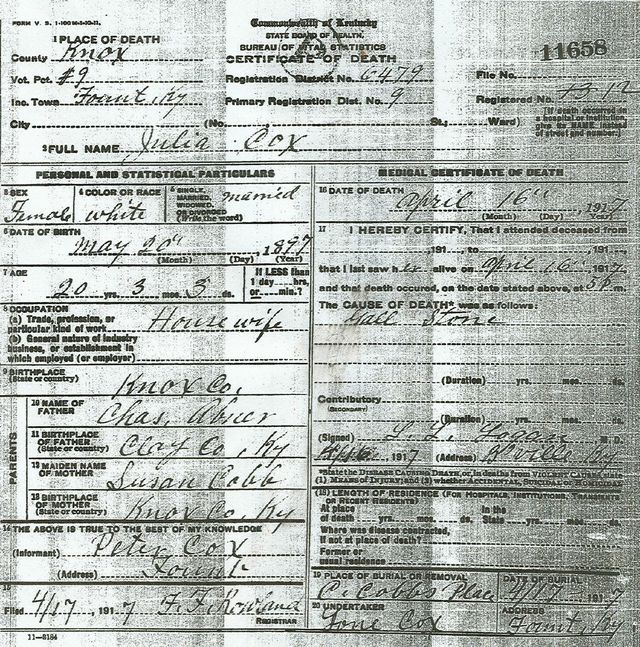 FORM V. S. 1-100M-1-10-11.
Commonwealth of Kentucky
STATE BOARD OF HEALTH.
BUREAU OF VITAL STATISTICS
CERTIFICATE OF DEATH
11658
1 PLACE OF DEATH
County Knox
Vot. Pct. #9
Inc. Town Fount, Ky
City
Registration District No. 6479
Primary Registration Dist. No. 9
File No.
Registered No.
(No. St.; Ward)
(If death occurred in a hospital or institution, give its NAME instead of street and number.)
2 FULL NAME Julia Cox
PERSONAL AND STATISTICAL PARTICULARS
3 SEX Female
4 COLOR OR RACE white
5 SINGLE, MARRIED, WIDOWED, OR DIVORCED (Write the word) married
6 DATE OF BIRTH
May 20th, 1897
(Month) (Day) (Year)
7 AGE
20 yrs. 3 mos. 3 ds.
If LESS than 1 day----hrs. or---min.?
8 OCCUPATION
(a) Trade, profession, or particular kind of work Housewife
(b) General nature of industry business, or establishment in which employed (or employer)
9 BIRTHPLACE (State or country) Knox Co.
PARENTS
10 NAME OF FATHER Chas. Abner
11 BIRTHPLACE OF FATHER (State or country) Clay Co, Ky
12 MAIDEN NAME OF MOTHER Susan Cobb
13 BIRTHPLACE OF MOTHER (State or country) Knox Co, Ky
14 THE ABOVE IS TRUE TO THE BEST OF MY KNOWLEDGE
(Informant) Peter Cox
(Address) Fount
15
Filed 4/17, 1917 F. F.
REGISTRAR
11-3184
MEDICAL CERTIFICATE OF DEATH
16 DATE OF DEATH
April 16th, 1917
(Month) (Day) (Year)
17 I HEREBY CERTIFY, That I attended deceased from
, 191 , to , 191 ,
that I last saw her alive on April 16th, 1917
and that death occured, on the date stated above, at m.
The CAUSE OF DEATH* was as follows:
Gall Stone
(Duration) yrs. mos. ds.
Contributory
(SECONDARY)
(Duration) yrs. mos. ds.
(Signed) M. D.
4/16 1917 (Address) Ky
*State the DISEASE CAUSING DEATH, or, in deaths from VIOLENT CAUSES, state
(1) MEANS OF INJURY; and (2) whether ACCIDENTAL, SUICIDAL or HOMICIDAL
(18) LENGTH OF RESIDENCE (FOR HOSPITALS, INSTITUTIONS, TRANSIENTS OR RECENT RESIDENTS)
At place of death yrs. mos. ds. In the State yrs. mos. ds.
Where was disease contracted,
if not at place of death?
Former or usual residence
19 PLACE OF BURIAL OR REMOVAL C. Cobbs Place
DATE OF BURIAL 4/17 1917
20 UNDERTAKER Cox
ADDRESS Fount, Ky